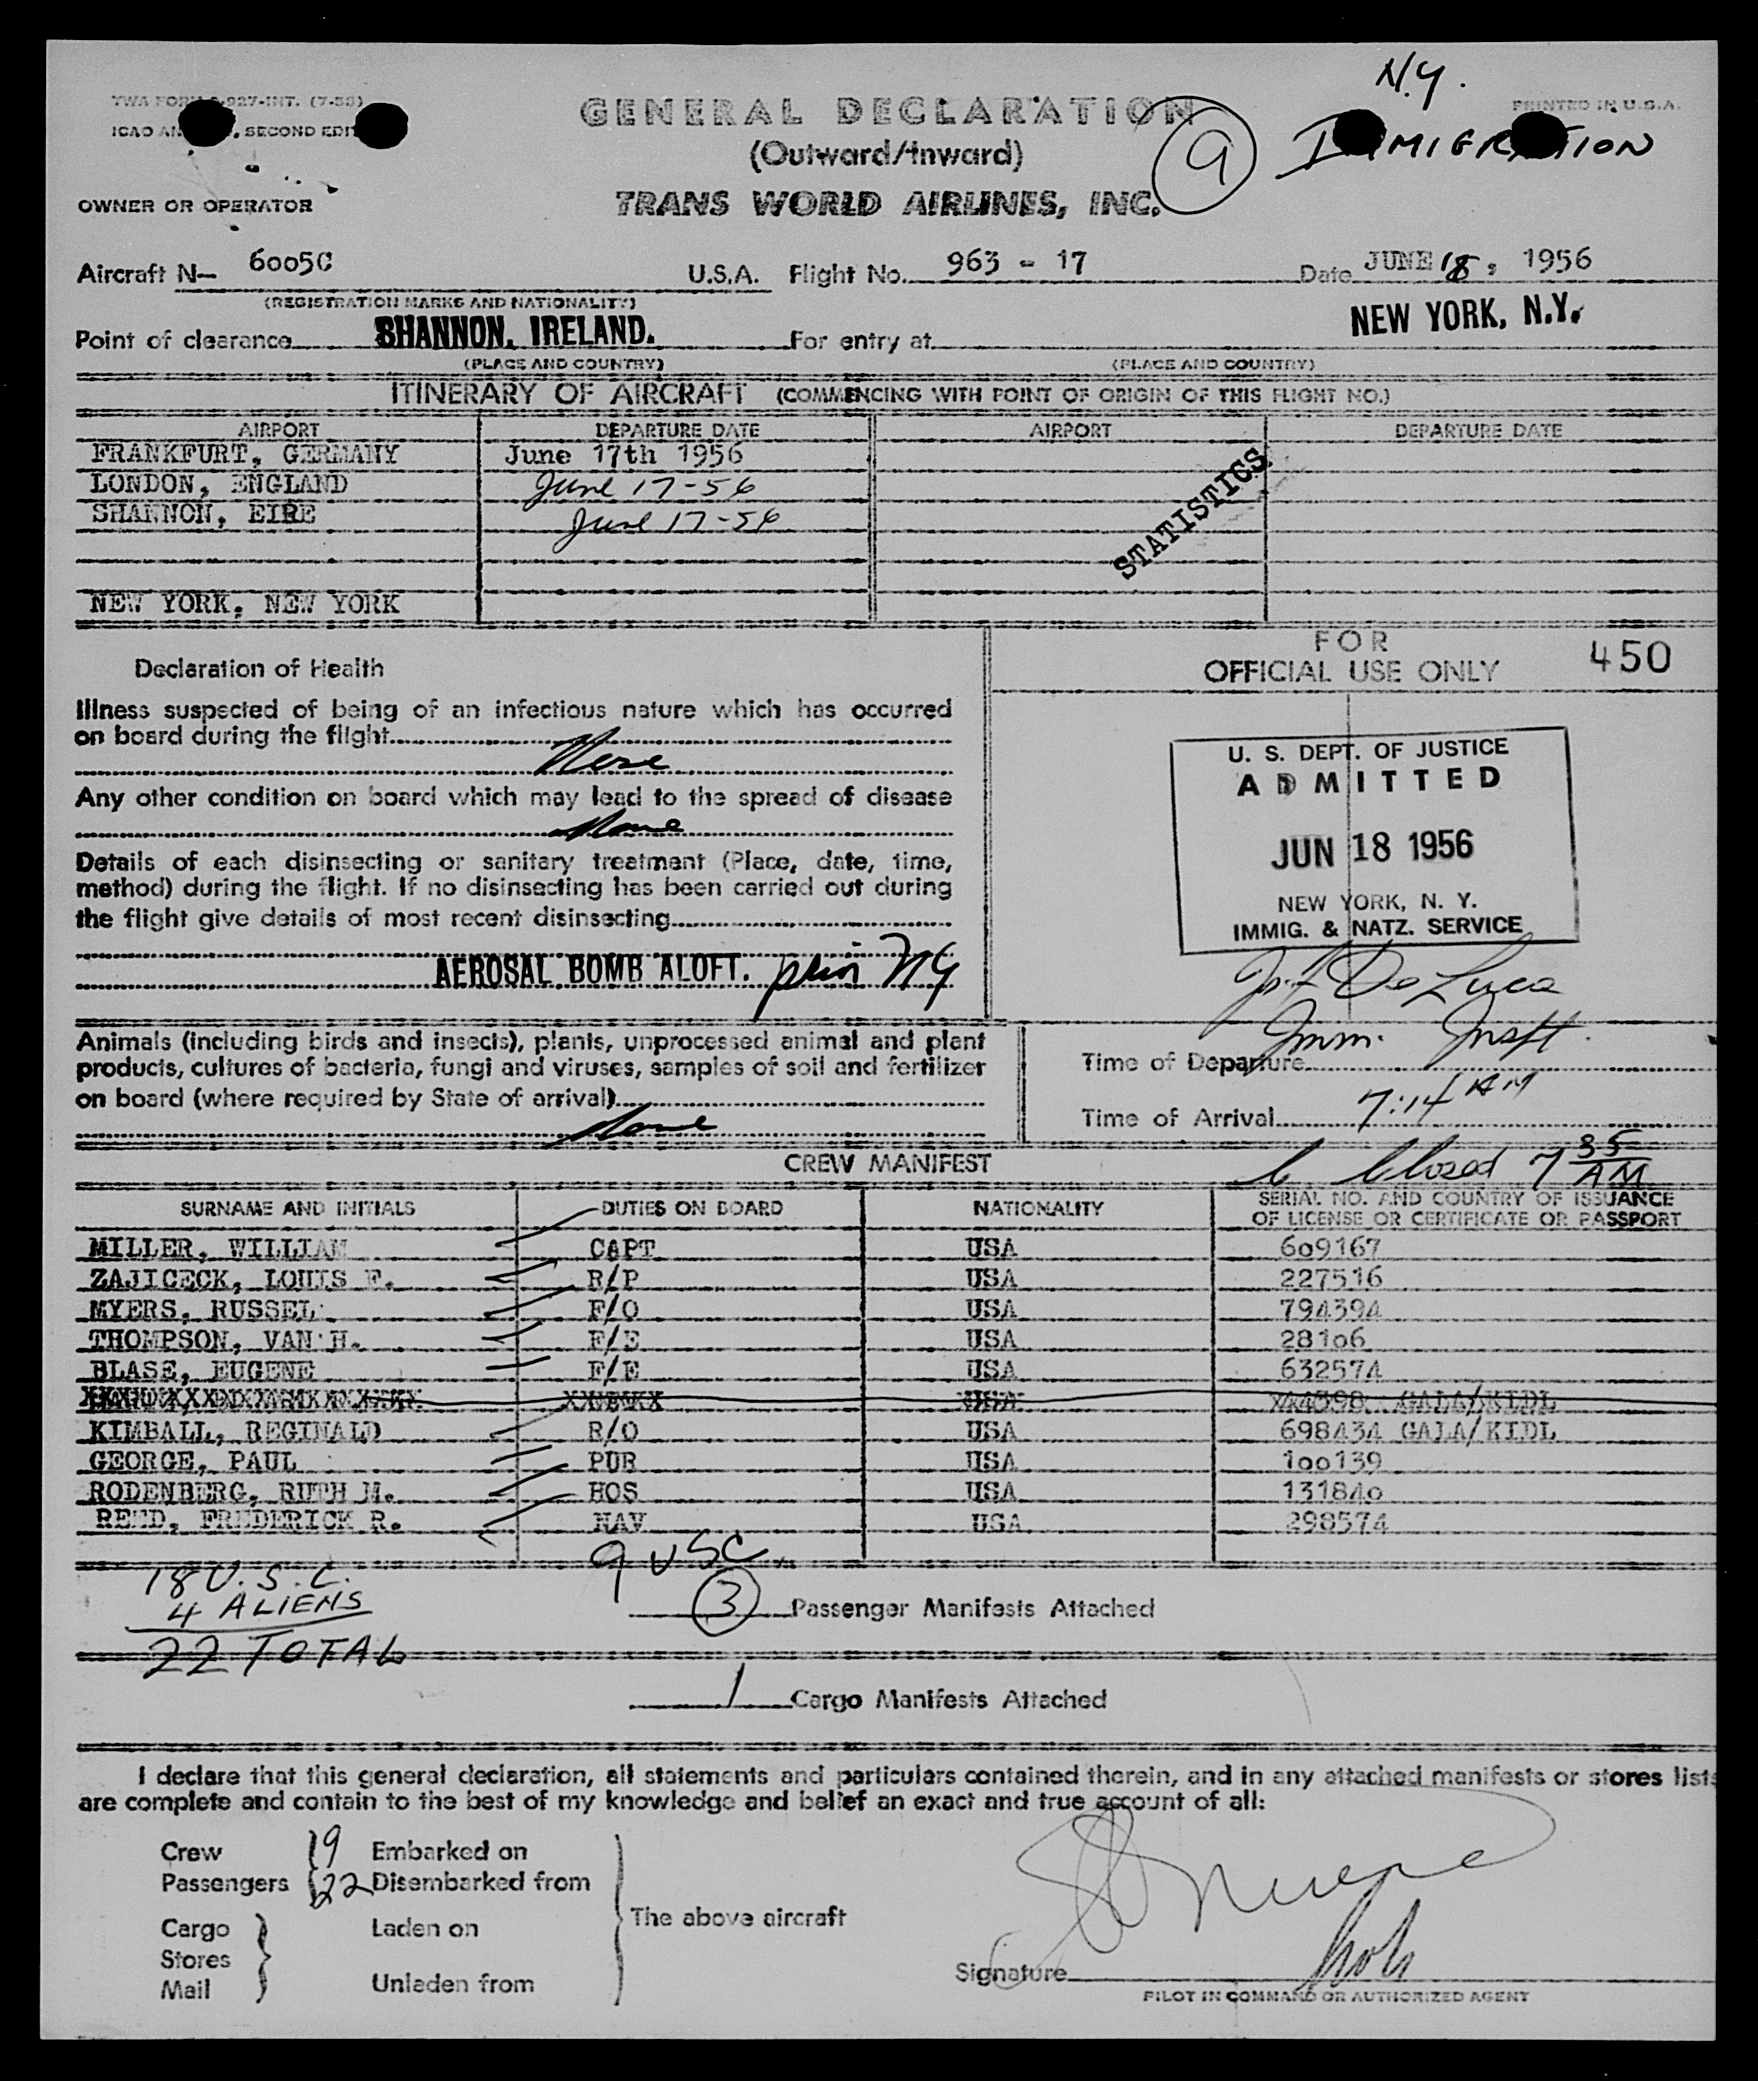 N.Y.
TWA FORM -927-INT. (7-53)
PRINTED IN U.S.A.
GENERAL DECLARATION
ICAO AN , SECOND EDI
IMMIGRATION
(Outward/Inward)
9
OWNER OR OPERATOR
TRANS WORLD AIRLINES, INC.
Aircraft N- 6005C U.S.A. Flight No. 963 - 17 Date JUNE 18, 1956
(REGISTRATION MARKS AND NATIONALITY)
Point of clearance SHANNON, IRELAND. For entry at NEW YORK, N.Y.
(PLACE AND COUNTRY) (PLACE AND COUNTRY)
ITINERARY OF AIRCRAFT (COMMENCING WITH POINT OF ORIGIN OF THIS FLIGHT NO.)
AIRPORT DEPARTURE DATE AIRPORT DEPARTURE DATE
FRANKFURT, GERMANY June 17th 1956
LONDON, ENGLAND June 17-56
SHANNON, EIRE June 17-56
STATISTICS
NEW YORK, NEW YORK
FOR
OFFICIAL USE ONLY 450
Declaration of Health
Illness suspected of being of an infectious nature which has occurred
on board during the flight
None
Any other condition on board which may lead to the spread of disease
None
Details of each disinsecting or sanitary treatment (Place, date, time,
method) during the flight. If no disinsecting has been carried out during
the flight give details of most recent disinsecting
AEROSAL BOMB ALOFT. NY
U. S. DEPT. OF JUSTICE
ADMITTED
JUN 18 1956
NEW YORK, N. Y.
IMMIG. & NATZ. SERVICE
De Luca
Imm. Inspt.
Animals (including birds and insects), plants, unprocessed animal and plant
products, cultures of bacteria, fungi and viruses, samples of soil and fertilizer
on board (where required by State of arrival)
None
Time of Departure
Time of Arrival 7:14 AM
closed 7 35 AM
CREW MANIFEST
SURNAME AND INITIALS DUTIES ON BOARD NATIONALITY SERIAL NO. AND COUNTRY OF ISSUANCE
OF LICENSE OR CERTIFICATE OR PASSPORT
MILLER, WILLIAM CAPT USA 609167
ZAJICECK, LOUIS F. R/P USA 227516
MYERS, RUSSEL F/O USA 794394
THOMPSON, VAN H. F/E USA 28106
BLASE, EUGENE F/E USA 632574
USA GALA/KIDL
KIMBALL, REGINALD R/O USA 698434 GALA/KIDL
GEORGE, PAUL PUR USA 100139
RODENBERG, RUTH M. HOS USA 131840
REED, FREDERICK R. NAV USA 298574
9 USC
18 U.S.C.
4 ALIENS
22 TOTAL
3 Passenger Manifests Attached
1 Cargo Manifests Attached
I declare that this general declaration, all statements and particulars contained therein, and in any attached manifests or stores lists
are complete and contain to the best of my knowledge and belief an exact and true account of all:
Crew 9 Embarked on
Passengers 22 Disembarked from
The above aircraft
Cargo Laden on
Stores
Mail Unladen from
Signature
PILOT IN COMMAND OR AUTHORIZED AGENT